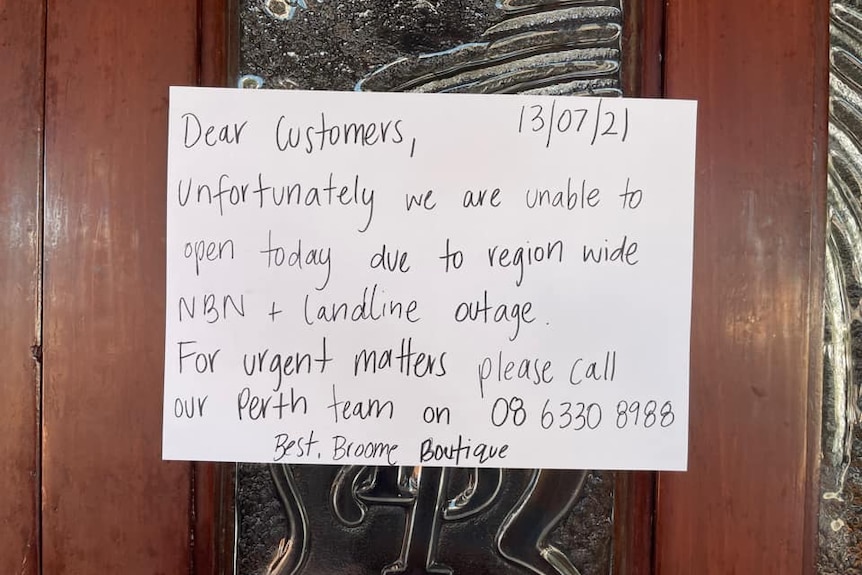 Dear Customers, 13/07/21
Unfortunately we are unable to
open today due to region wide
NBN + landline outage.
For urgent matters please call
our Perth team on 08 6330 8988
Best, Broome Boutique